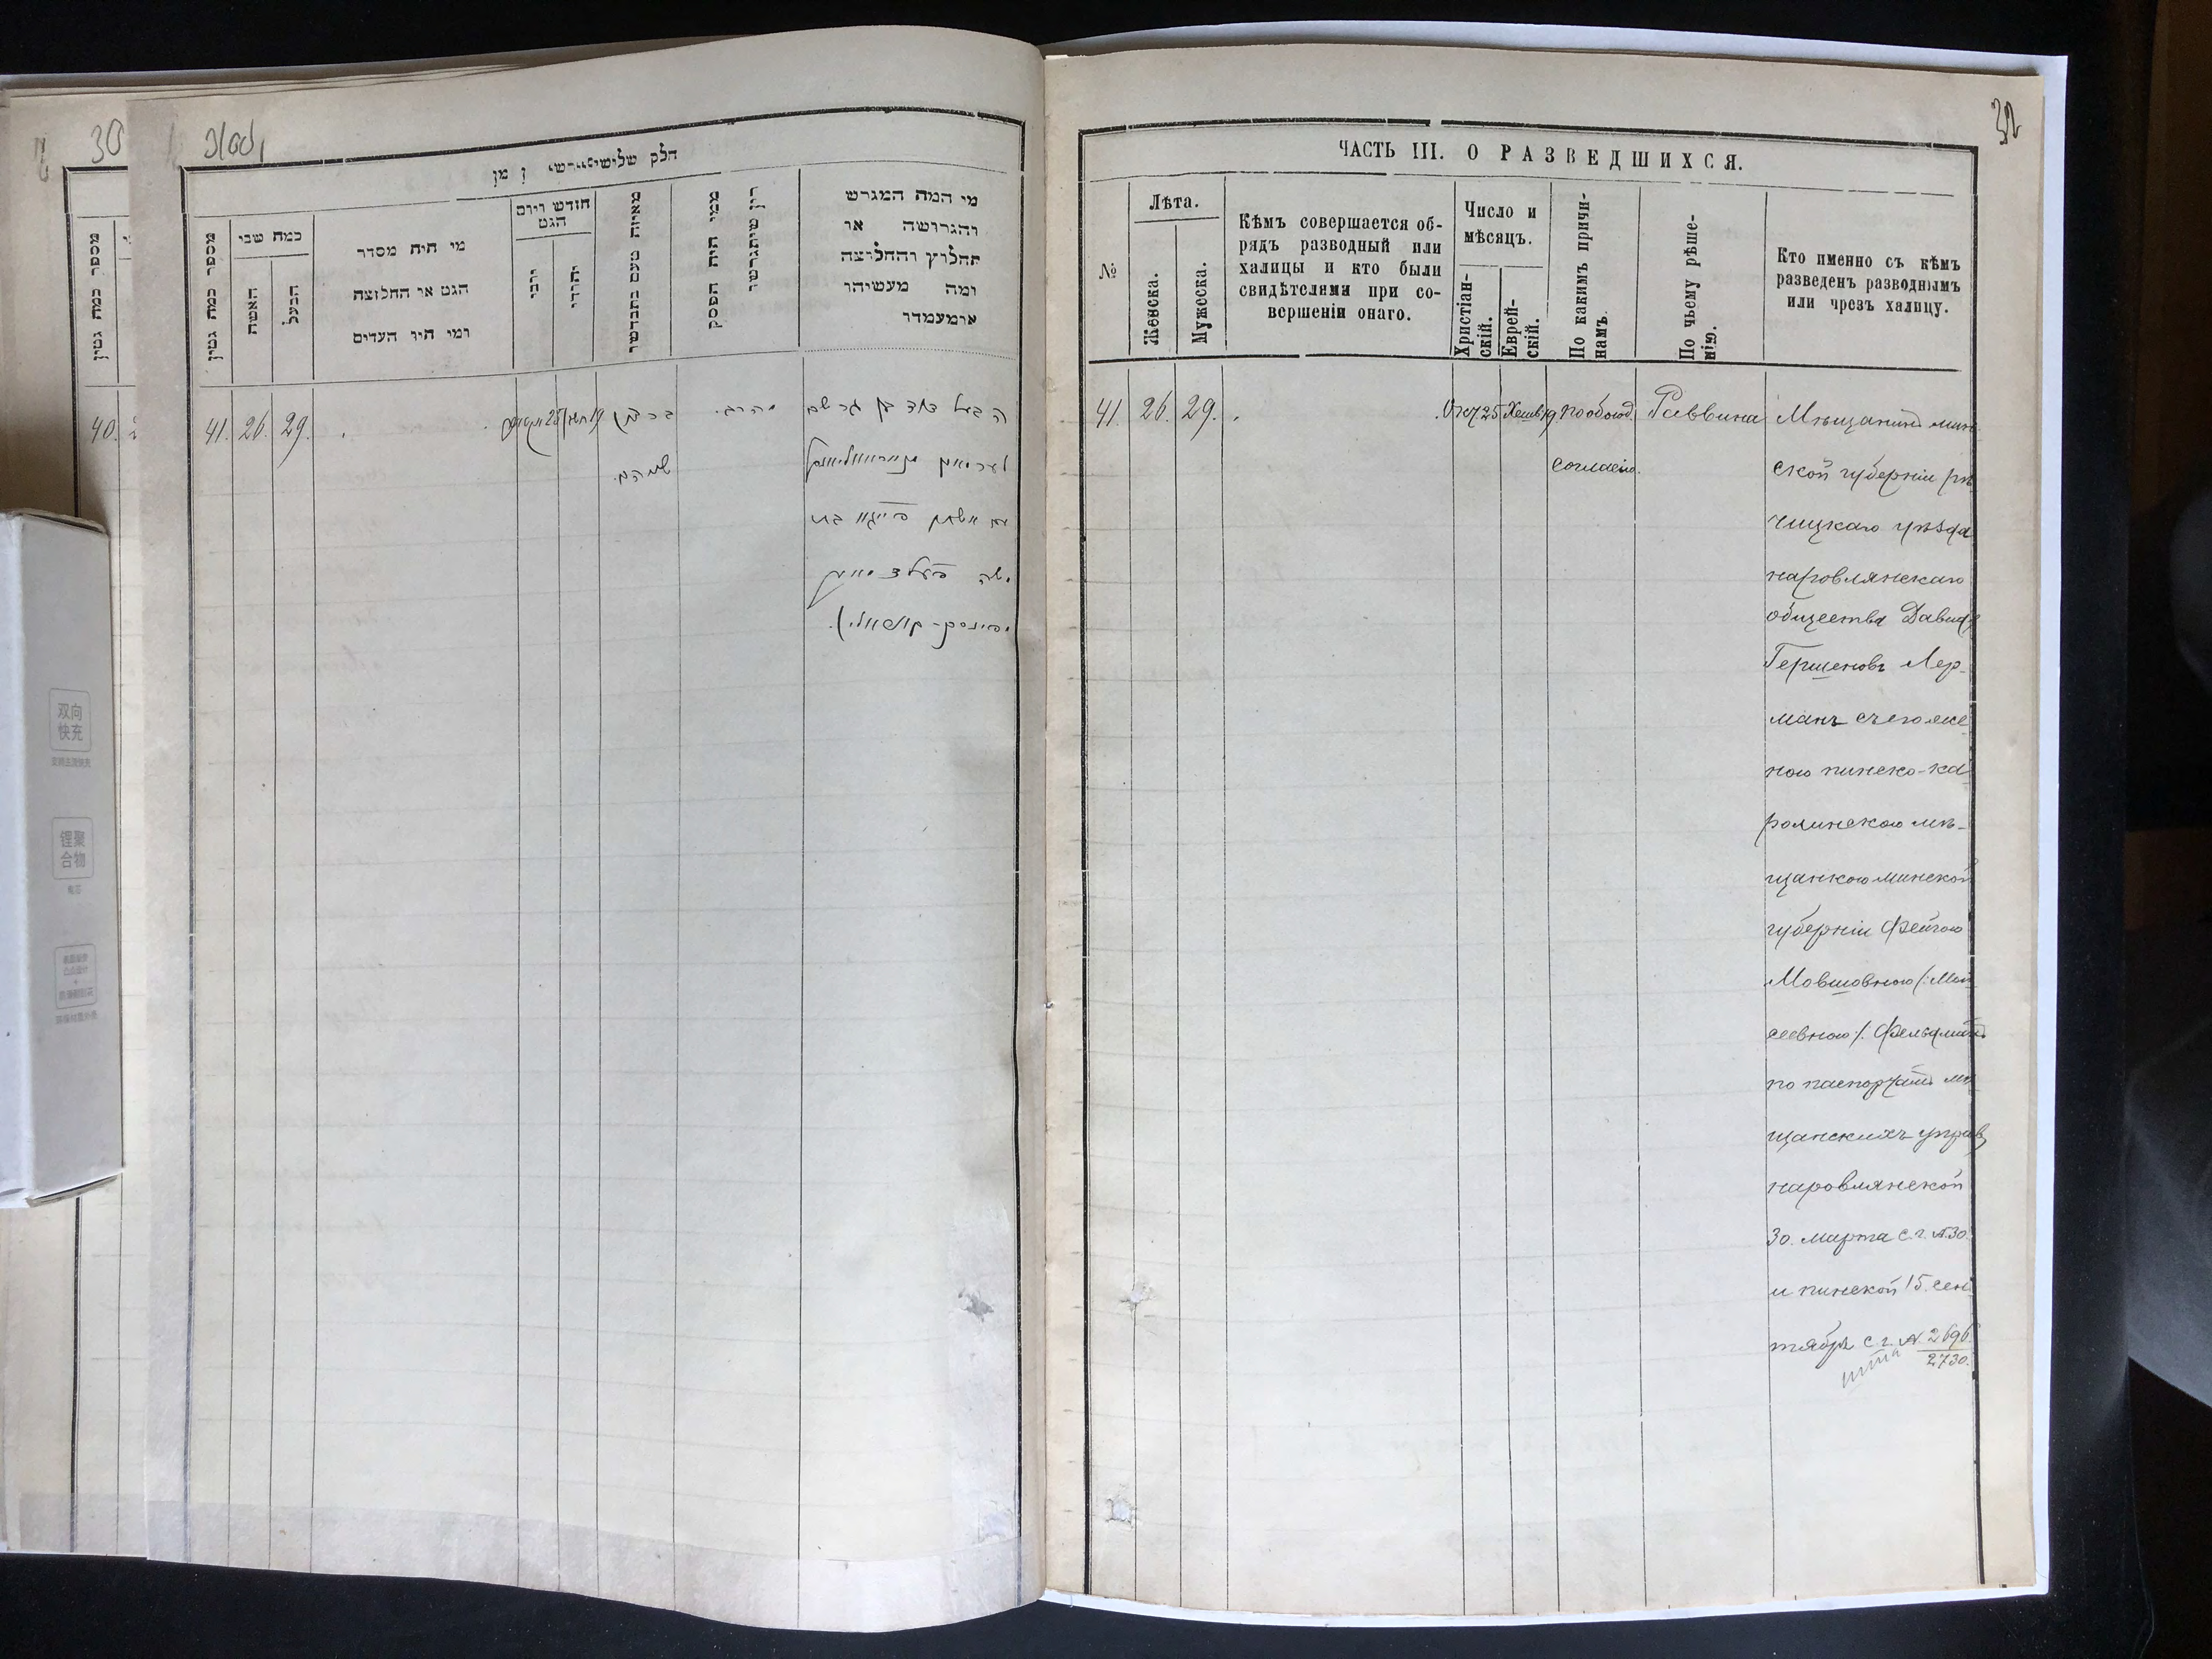 30
31об,
חלק שלישי
מן
מספר כמה גטין
40.
מספר כמה גטין
כמה שני
האשה
הבעל
מי היה מסדר
הגט או החלוצה
ומי היו העדים
חודש ויום
הגט
יהודי
מאיזה טעם נתגרשו
ממי היה הפסק
דין שיתגרשו
מי המה המגרש
והגרושה או
החלוץ והחלוצה
ומה מעשיהו
ומעמדו
41. 26. 29.
25
19
ברצון
שניהם.
הרב.
הבעל דוד בן גרשם
לערמאן
עם אשתו פייגא בת
משה פעלדמאן
32
ЧАСТЬ III. О РАЗВЕДШИХСЯ.
№
Лѣта.
Женска.
Мужеска.
Кѣмъ совершается об-
рядъ разводный или
халицы и кто были
свидѣтелями при со-
вершеніи онаго.
Число и
мѣсяцъ.
Христіан-
скій.
Еврей-
скій.
По какимъ причи-
намъ.
По чьему рѣше-
нію.
Кто именно съ кѣмъ
разведенъ разводнымъ
или чрезъ халицу.
41. 26. 29. Окт 25 Хешв 19 по обоюд. Раввина Мѣщанинъ мин
согласію. ской губерніи рѣ
чицкаго уѣзда
наровлянскаго
общества Давидъ
Гершеновъ Лер-
манъ съ его же
ною пинско-ка
ролинскою мѣ-
щанкою минской
губерніи Фейгою
Мовшовною (: Мои
сеевною :) Фельдманъ
по паспортамъ мѣ
щанскихъ управ
наровлянской
30. марта с. г. №30.
и пинской 15. сен
тября с. г. № 2696
2730.
双向
快充
锂聚
合物